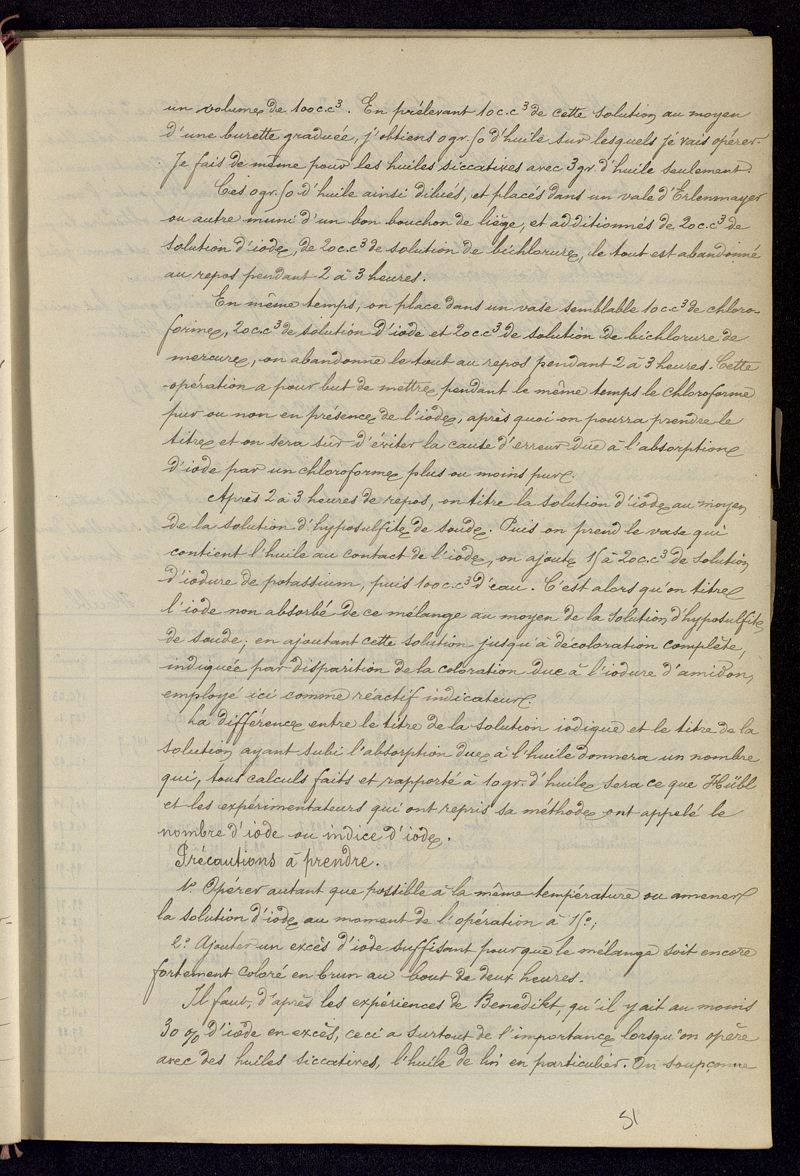 un volume de 100 c.c³. En prélevant 10 c.c³ de cette solution au moyen
d'une burette graduée, j'obtiens 0 gr. 50 d'huile sur lesquels je vais opérer.
Je fais de même pour les huiles siccatives avec 3 gr. d'huile seulement.
Ces 0 gr. 50 d'huile ainsi dilués, et placés dans un vase d'Erlenmayer
ou autre muni d'un bon bouchon de liège, et additionnés de 20 c.c³ de
solution d'iode, de 20 c.c³ de solution de bichlorure, le tout est abandonné
au repos pendant 2 à 3 heures.
En même temps, on place dans un vase semblable 10 c.c³ de chloro-
forme, 20 c.c³ de solution d'iode et 20 c.c³ de solution de bichlorure de
mercure, on abandonne le tout au repos pendant 2 à 3 heures. Cette
opération a pour but de mettre pendant le même temps le chloroforme
pur ou non en présence de l'iode, après quoi on pourra prendre le
titre et on sera sûr d'éviter la cause d'erreur due à l'absorption
d'iode par un chloroforme plus ou moins pur.
Après 2 à 3 heures de repos, on titre la solution d'iode au moyen
de la solution d'hyposulfite de soude. Puis on prend le vase qui
contient l'huile au contact de l'iode, on ajoute 15 à 20 c.c³ de solution
d'iodure de potassium, puis 100 c.c³ d'eau. C'est alors qu'on titre
l'iode non absorbé de ce mélange au moyen de la solution d'hyposulfite
de soude, en ajoutant cette solution jusqu'à décoloration complète,
indiquée par disparition de la coloration due à l'iodure d'amidon,
employé ici comme réactif indicateur.
La différence entre le titre de la solution iodique et le titre de la
solution ayant subi l'absorption due à l'huile donnera un nombre
qui, tous calculs faits et rapporté à 10 gr. d'huile sera ce que Hübl
et les expérimentateurs qui ont repris sa méthode ont appelé le
nombre d'iode ou indice d'iode.
Précautions à prendre.
1º Opérer autant que possible à la même température ou amener
la solution d'iode au moment de l'opération à 15°;
2º Ajouter un excès d'iode suffisant pour que le mélange soit encore
fortement coloré en brun au bout de deux heures.
Il faut, d'après les expériences de Benedikt, qu'il y ait au moins
30 % d'iode en excès, ceci a surtout de l'importance lorsqu'on opère
avec des huiles siccatives, l'huile de lin en particulier. On soupçonne
51